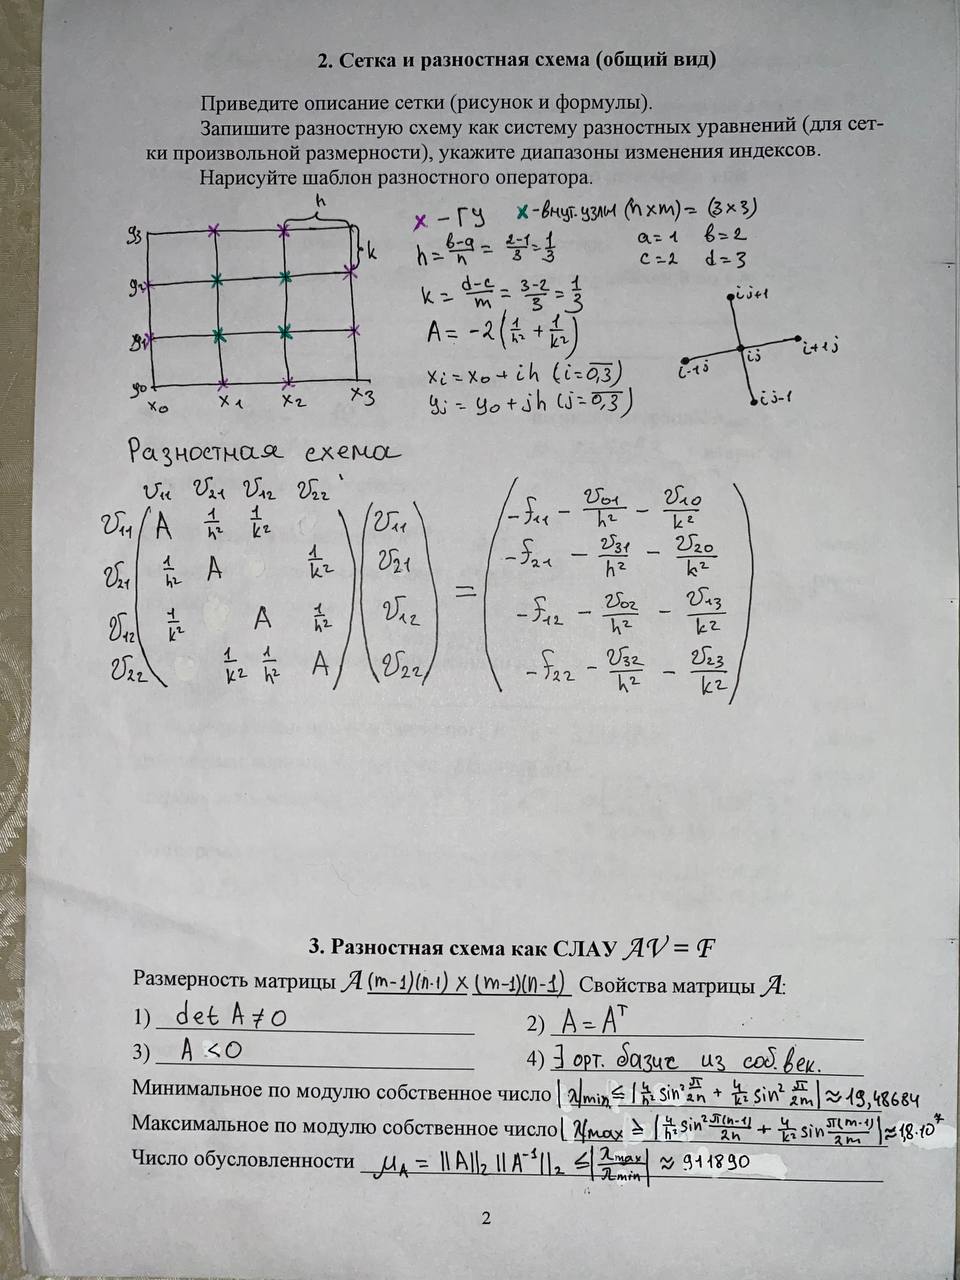 2. Сетка и разностная схема (общий вид)
Приведите описание сетки (рисунок и формулы).
Запишите разностную схему как систему разностных уравнений (для сет-
ки произвольной размерности), укажите диапазоны изменения индексов.
Нарисуйте шаблон разностного оператора.
h
k
y3
y2
y1
y0
x0 x1 x2 x3
x - ГУ x - внут. узлы (n x m) = (3 x 3)
h = (b-a)/n = (2-1)/3 = 1/3
a = 1 b = 2
c = 2 d = 3
k = (d-c)/m = (3-2)/3 = 1/3
A = -2(1/h² + 1/k²)
xi = x0 + ih (i = 0,3)
yj = y0 + jh (j = 0,3)
ij+1
i-1j ij i+1j
ij-1
Разностная схема
v11 v21 v12 v22
v11 A 1/h² 1/k² v11 -f11 - v01/h² - v10/k²
v21 1/h² A 1/k² v21 -f21 - v31/h² - v20/k²
=
v12 1/k² A 1/h² v12 -f12 - v02/h² - v13/k²
v22 1/k² 1/h² A v22 -f22 - v32/h² - v23/k²
3. Разностная схема как СЛАУ AV = F
Размерность матрицы A (m-1)(n-1) x (m-1)(n-1) Свойства матрицы A:
1) det A ≠ 0 2) A = Aᵀ
3) A < 0 4) ∃ орт. базис из соб. век.
Минимальное по модулю собственное число |λ|min ≤ |4/h² sin² π/2n + 4/k² sin² π/2m| ≈ 19,48684
Максимальное по модулю собственное число |λ|max ≥ |4/h² sin² π(n-1)/2n + 4/k² sin π(m-1)/2m| ≈ 18·10⁷
Число обусловленности μA = ||A||₂ ||A⁻¹||₂ ≤ |λmax/λmin| ≈ 911890
2